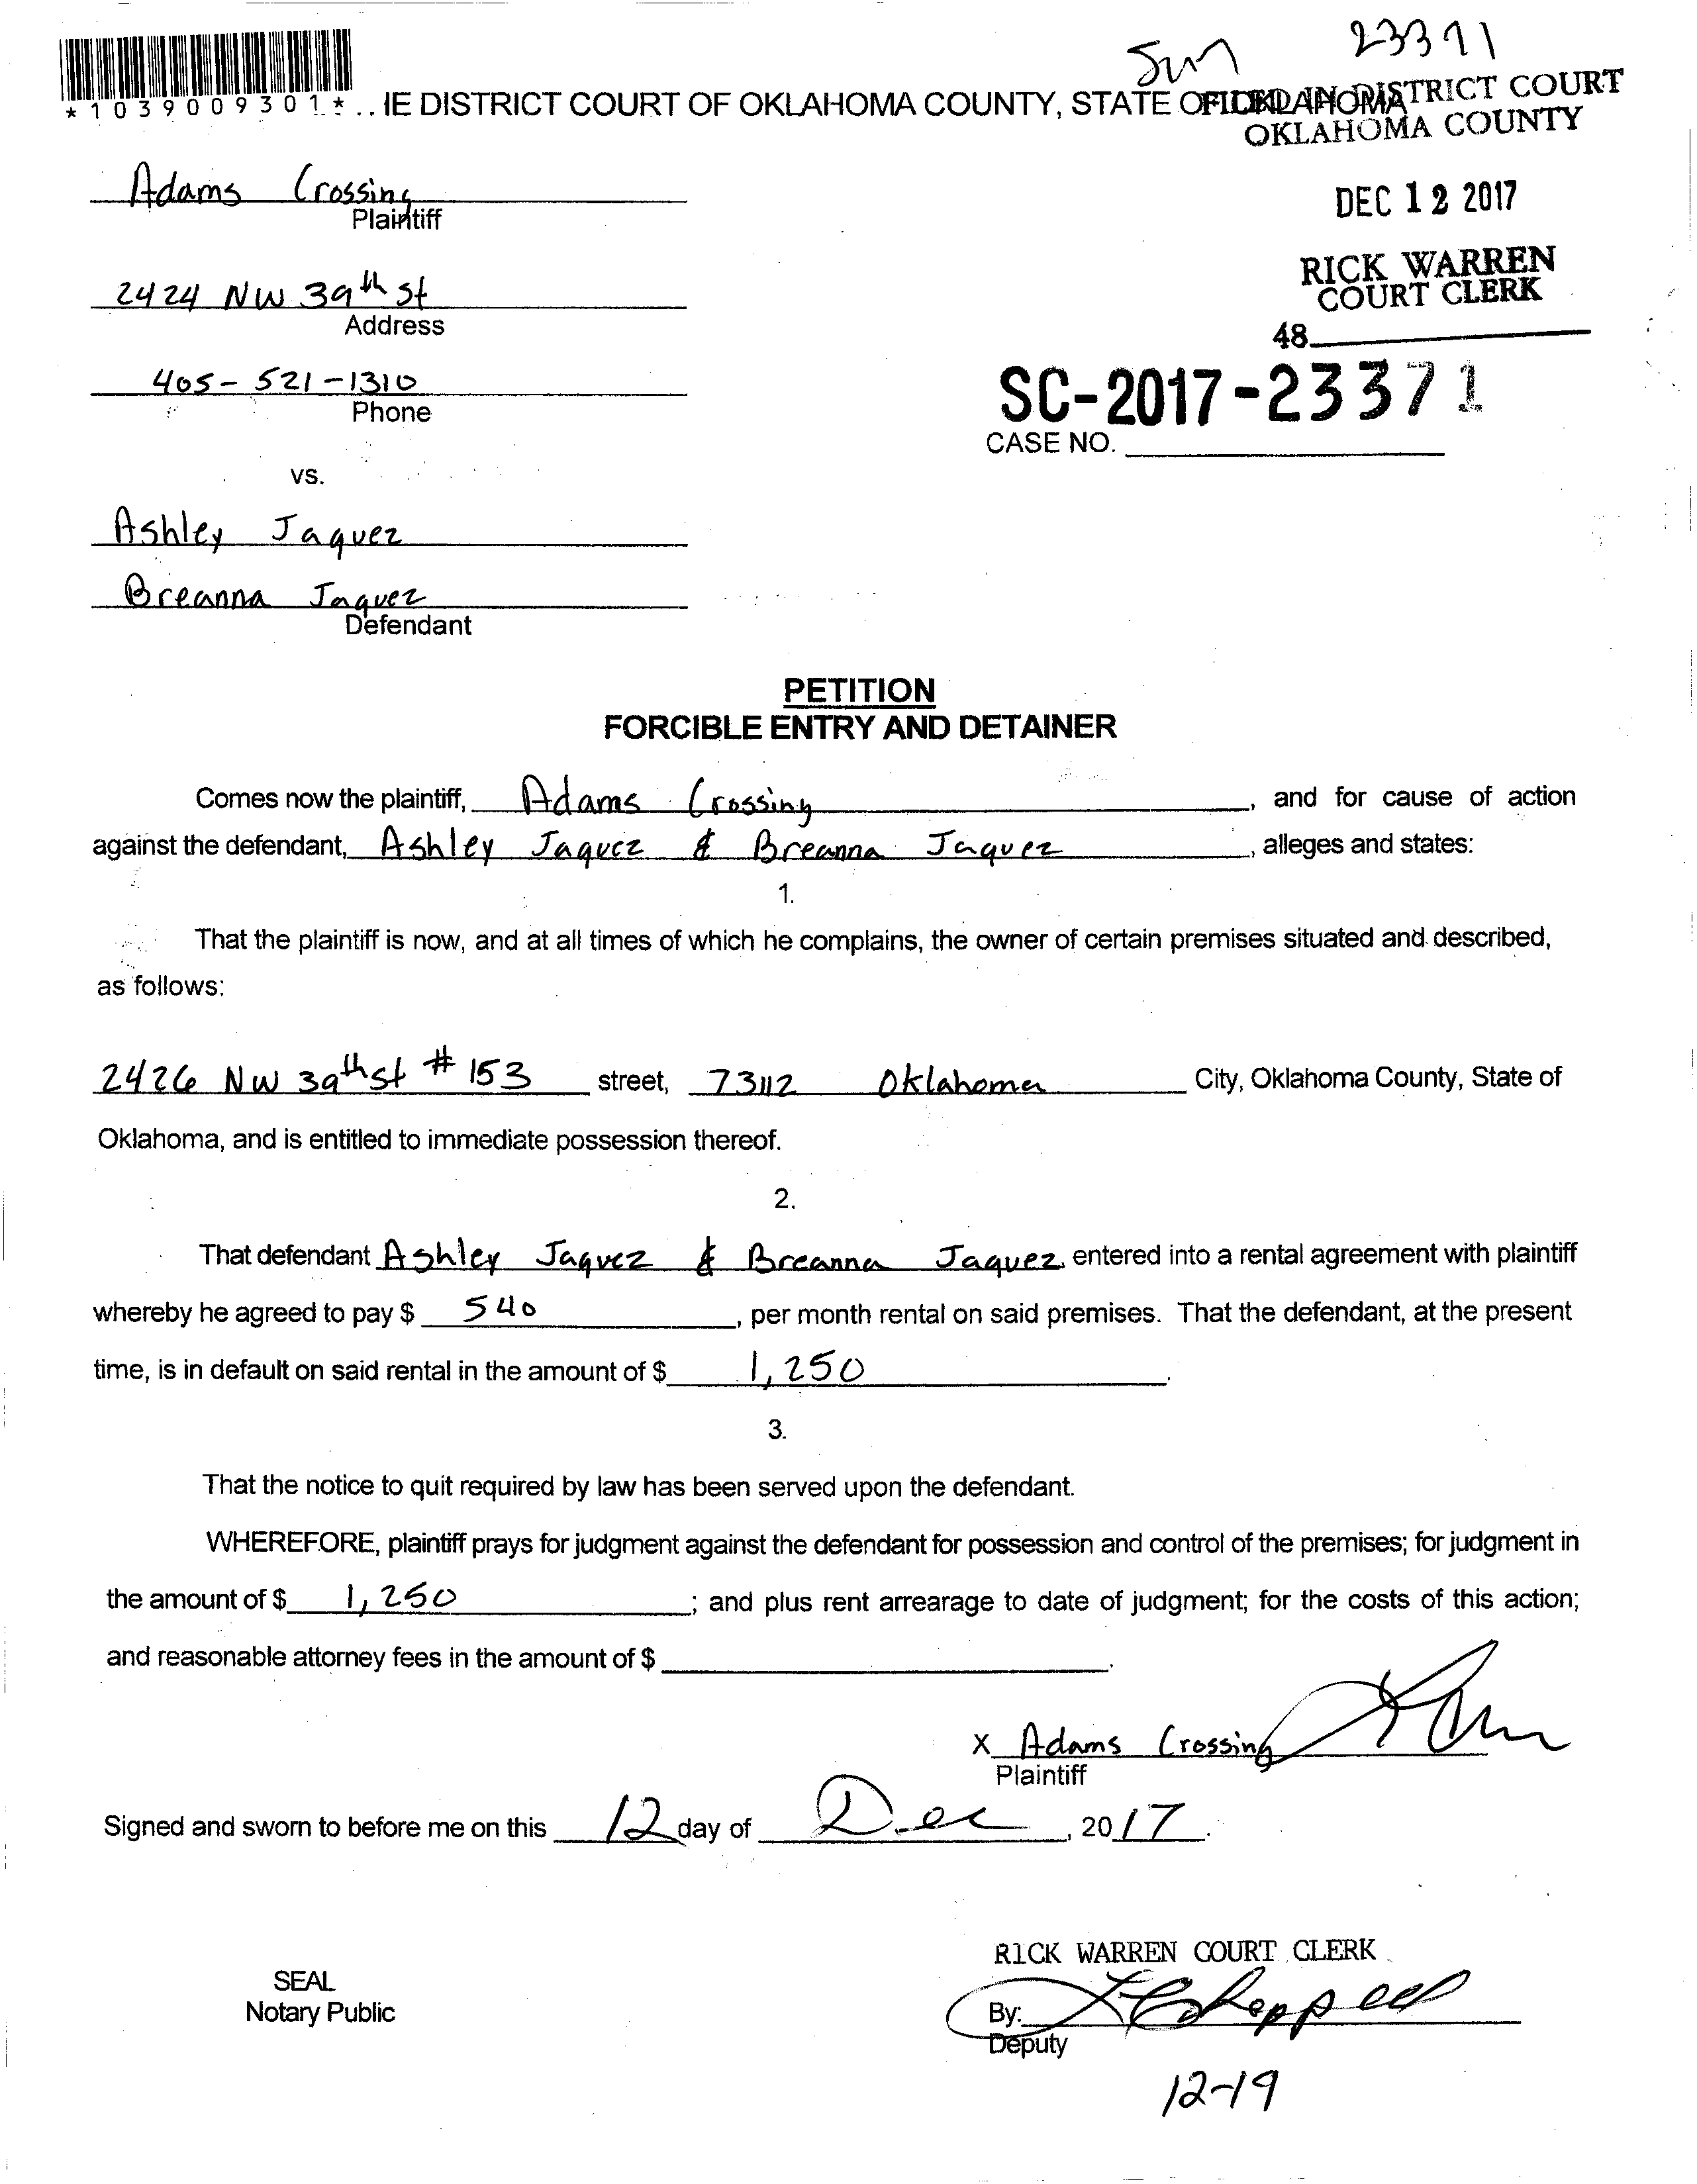 Sum 23371
*1039009301*
IE DISTRICT COURT OF OKLAHOMA COUNTY, STATE OF OKLAHOMA
FILED IN DISTRICT COURT
OKLAHOMA COUNTY
Adams Crossing
Plaintiff
DEC 12 2017
RICK WARREN
COURT CLERK
2424 NW 39th st
Address
48
405-521-1310
Phone
SC-2017-23371
CASE NO.
vs.
Ashley Jaquez
Breanna Jaquez
Defendant
PETITION
FORCIBLE ENTRY AND DETAINER
Comes now the plaintiff, Adams Crossing, and for cause of action
against the defendant, Ashley Jaquez & Breanna Jaquez, alleges and states:
1.
That the plaintiff is now, and at all times of which he complains, the owner of certain premises situated and described,
as follows:
2426 NW 39th st # 153 street, 73112 Oklahoma City, Oklahoma County, State of
Oklahoma, and is entitled to immediate possession thereof.
2.
That defendant Ashley Jaquez & Breanna Jaquez, entered into a rental agreement with plaintiff
whereby he agreed to pay $ 540, per month rental on said premises. That the defendant, at the present
time, is in default on said rental in the amount of $ 1,250.
3.
That the notice to quit required by law has been served upon the defendant.
WHEREFORE, plaintiff prays for judgment against the defendant for possession and control of the premises; for judgment in
the amount of $ 1,250; and plus rent arrearage to date of judgment; for the costs of this action;
and reasonable attorney fees in the amount of $.
X Adams Crossing
Plaintiff
Signed and sworn to before me on this 12 day of Dec, 2017.
RICK WARREN COURT CLERK
SEAL
Notary Public
By:
Deputy
12-19